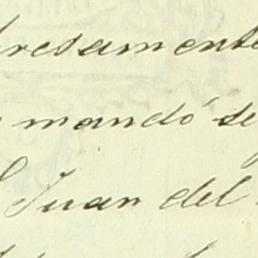 resamente
mandó se
Juan del